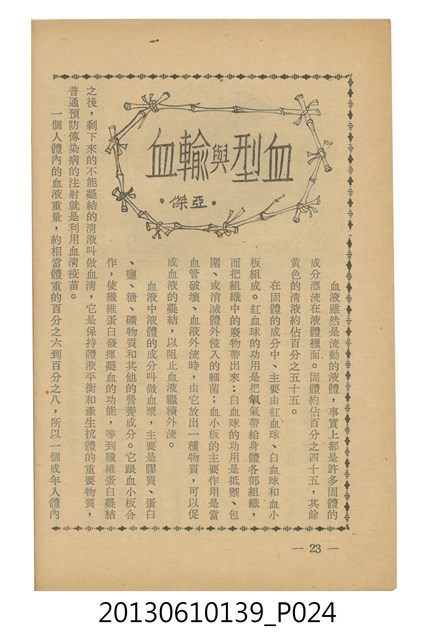 血型與輸血
•亞傑•
血液雖然是流動的液體，事實上都是許多固體的
成分漂流在液體裡面。固體約佔百分之四十五，其餘
黃色的清液約佔百分之五十五。
在固體的成分中、主要由紅血球、白血球和血小
板組成。紅血球的功用是把氧氣帶給身體各部組織，
而把組織中的廢物帶出來；白血球的功用是抵禦、包
圍、或消滅體外侵入的細菌；血小板的主要作用是當
血管破壞、血液外流時，由它放出一種物質，可以促
成血液的凝結，以阻止血液繼續外流。
血液中液體的成分叫做血漿，主要是膠質、蛋白
、鹽、糖、礦物質和其他的營養成分。它跟血小板合
作，使纖維蛋白發揮凝血的功能，等到纖維蛋白凝結
之後，剩下來的不能凝結的清液叫做血清，它是保持體液平衡和產生抗體的重要物質，
普通預防傳染病的注射就是利用血清疫苗。
一個人體內的血液重量，約相當體重的百分之六到百分之八，所以一個成年人體內
— 23 —
20130610139_P024